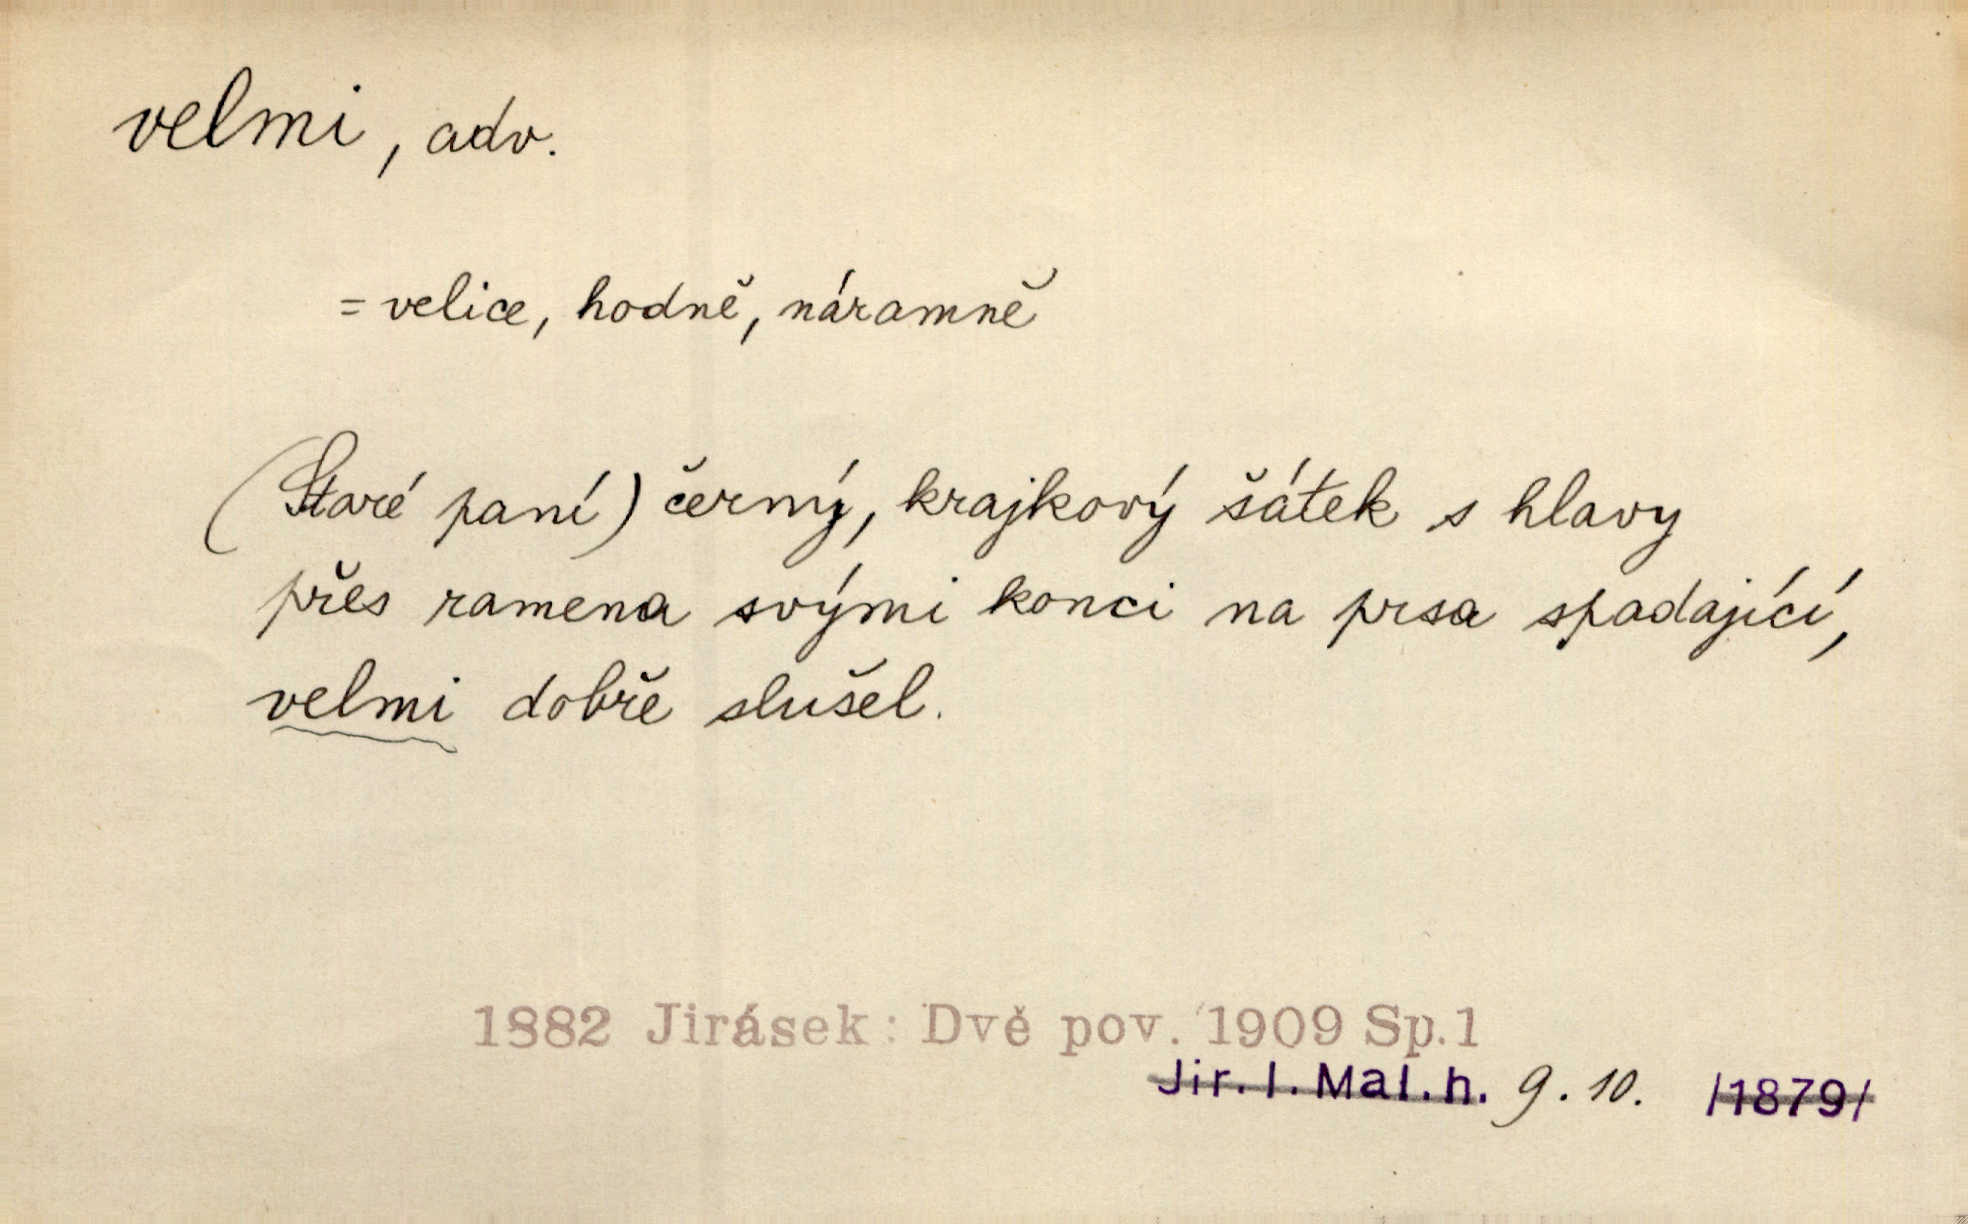 velmi, adv.
= velice, hodně, náramně
(Staré paní) černý, krajkový šátek s hlavy
přes ramena svými konci na prsa spadající,
velmi dobře slušel.
1882 Jirásek: Dvě pov. 1909 Sp.1
Jir. I. Mal. h. 9. 10. /1879/